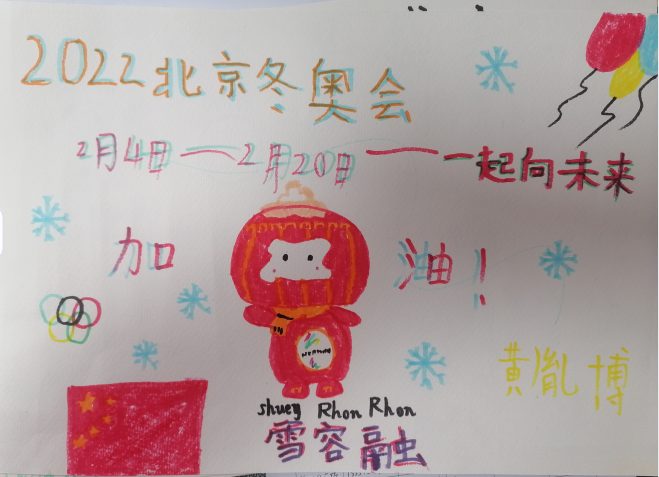 2022北京冬奥会
2月4日——2月20日——一起向未来
加油！
shuey Rhon Rhon
雪容融
黄胤博